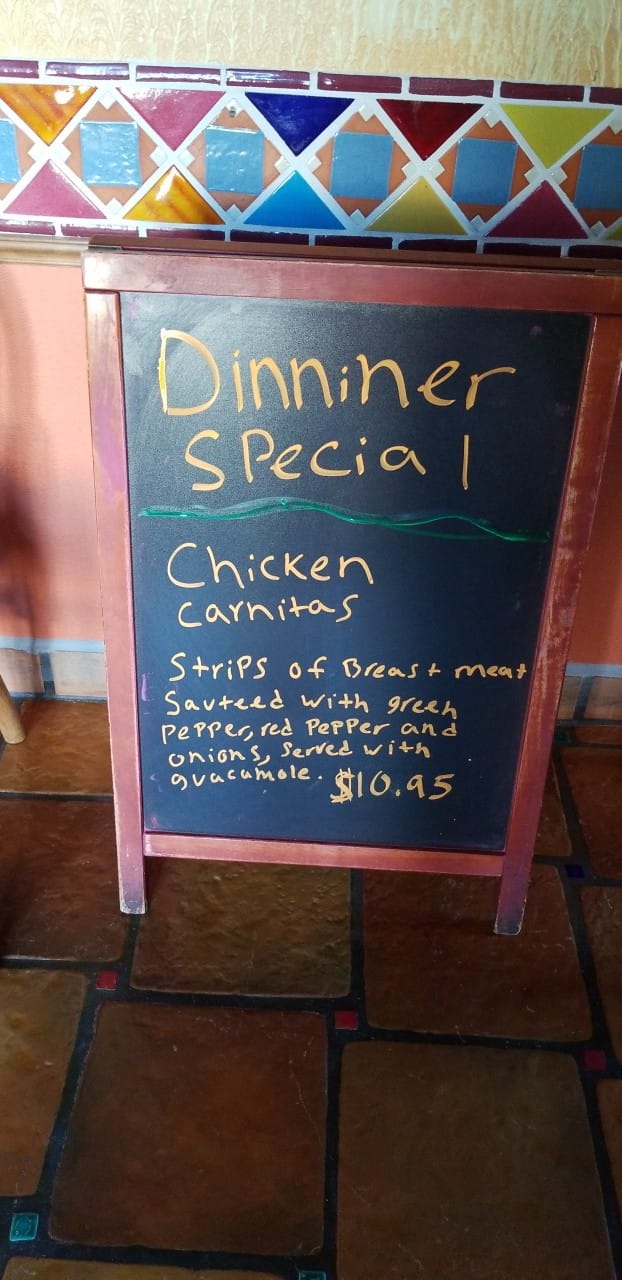 Dinniner
Special
Chicken
Carnitas
Strips of Breast meat
Sauteed with green
pepper, red pepper and
onions, served with
guacamole. $10.95